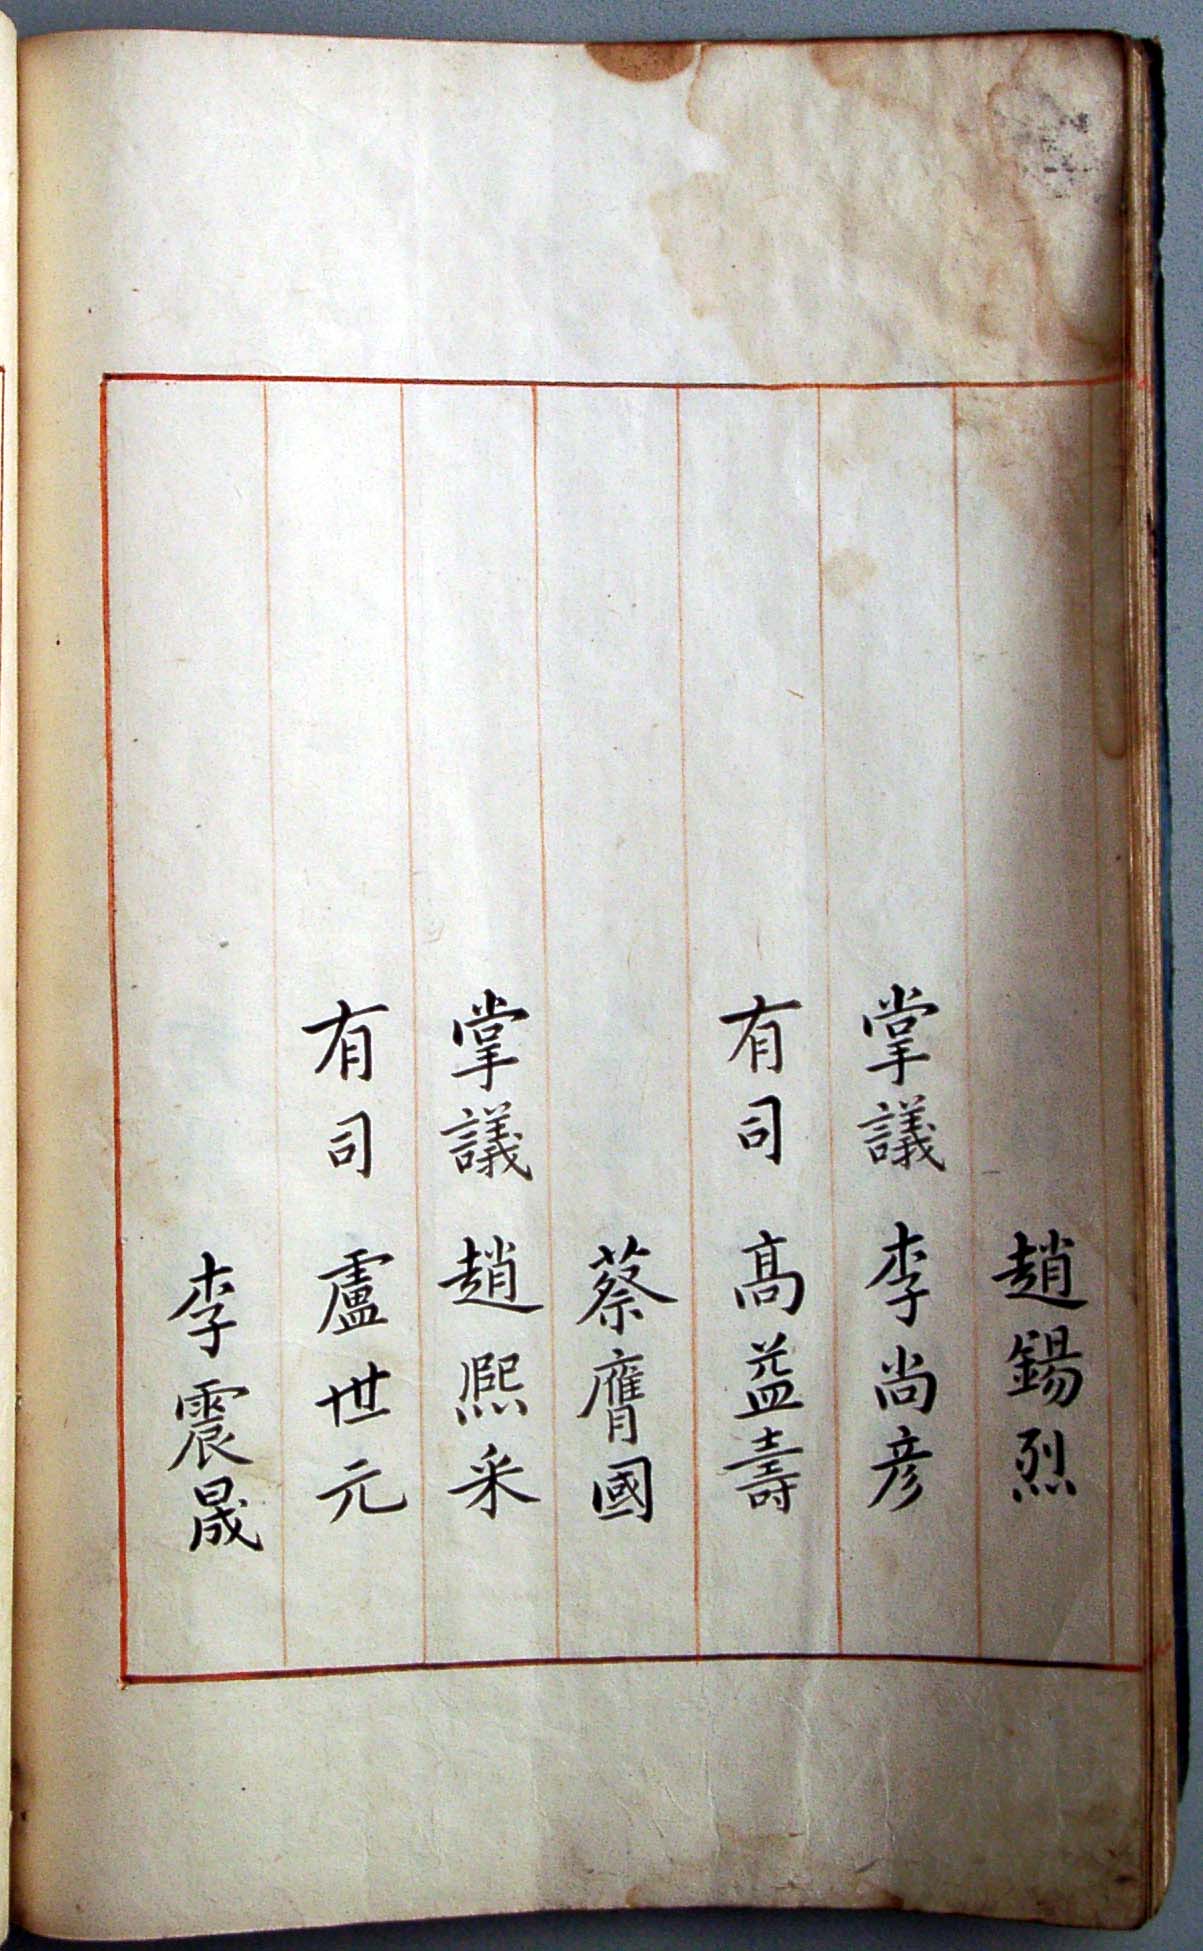 趙錫烈
掌議 李尚彦
有司 高益壽
蔡膺國
掌議 趙熙采
有司 盧世元
李震晟